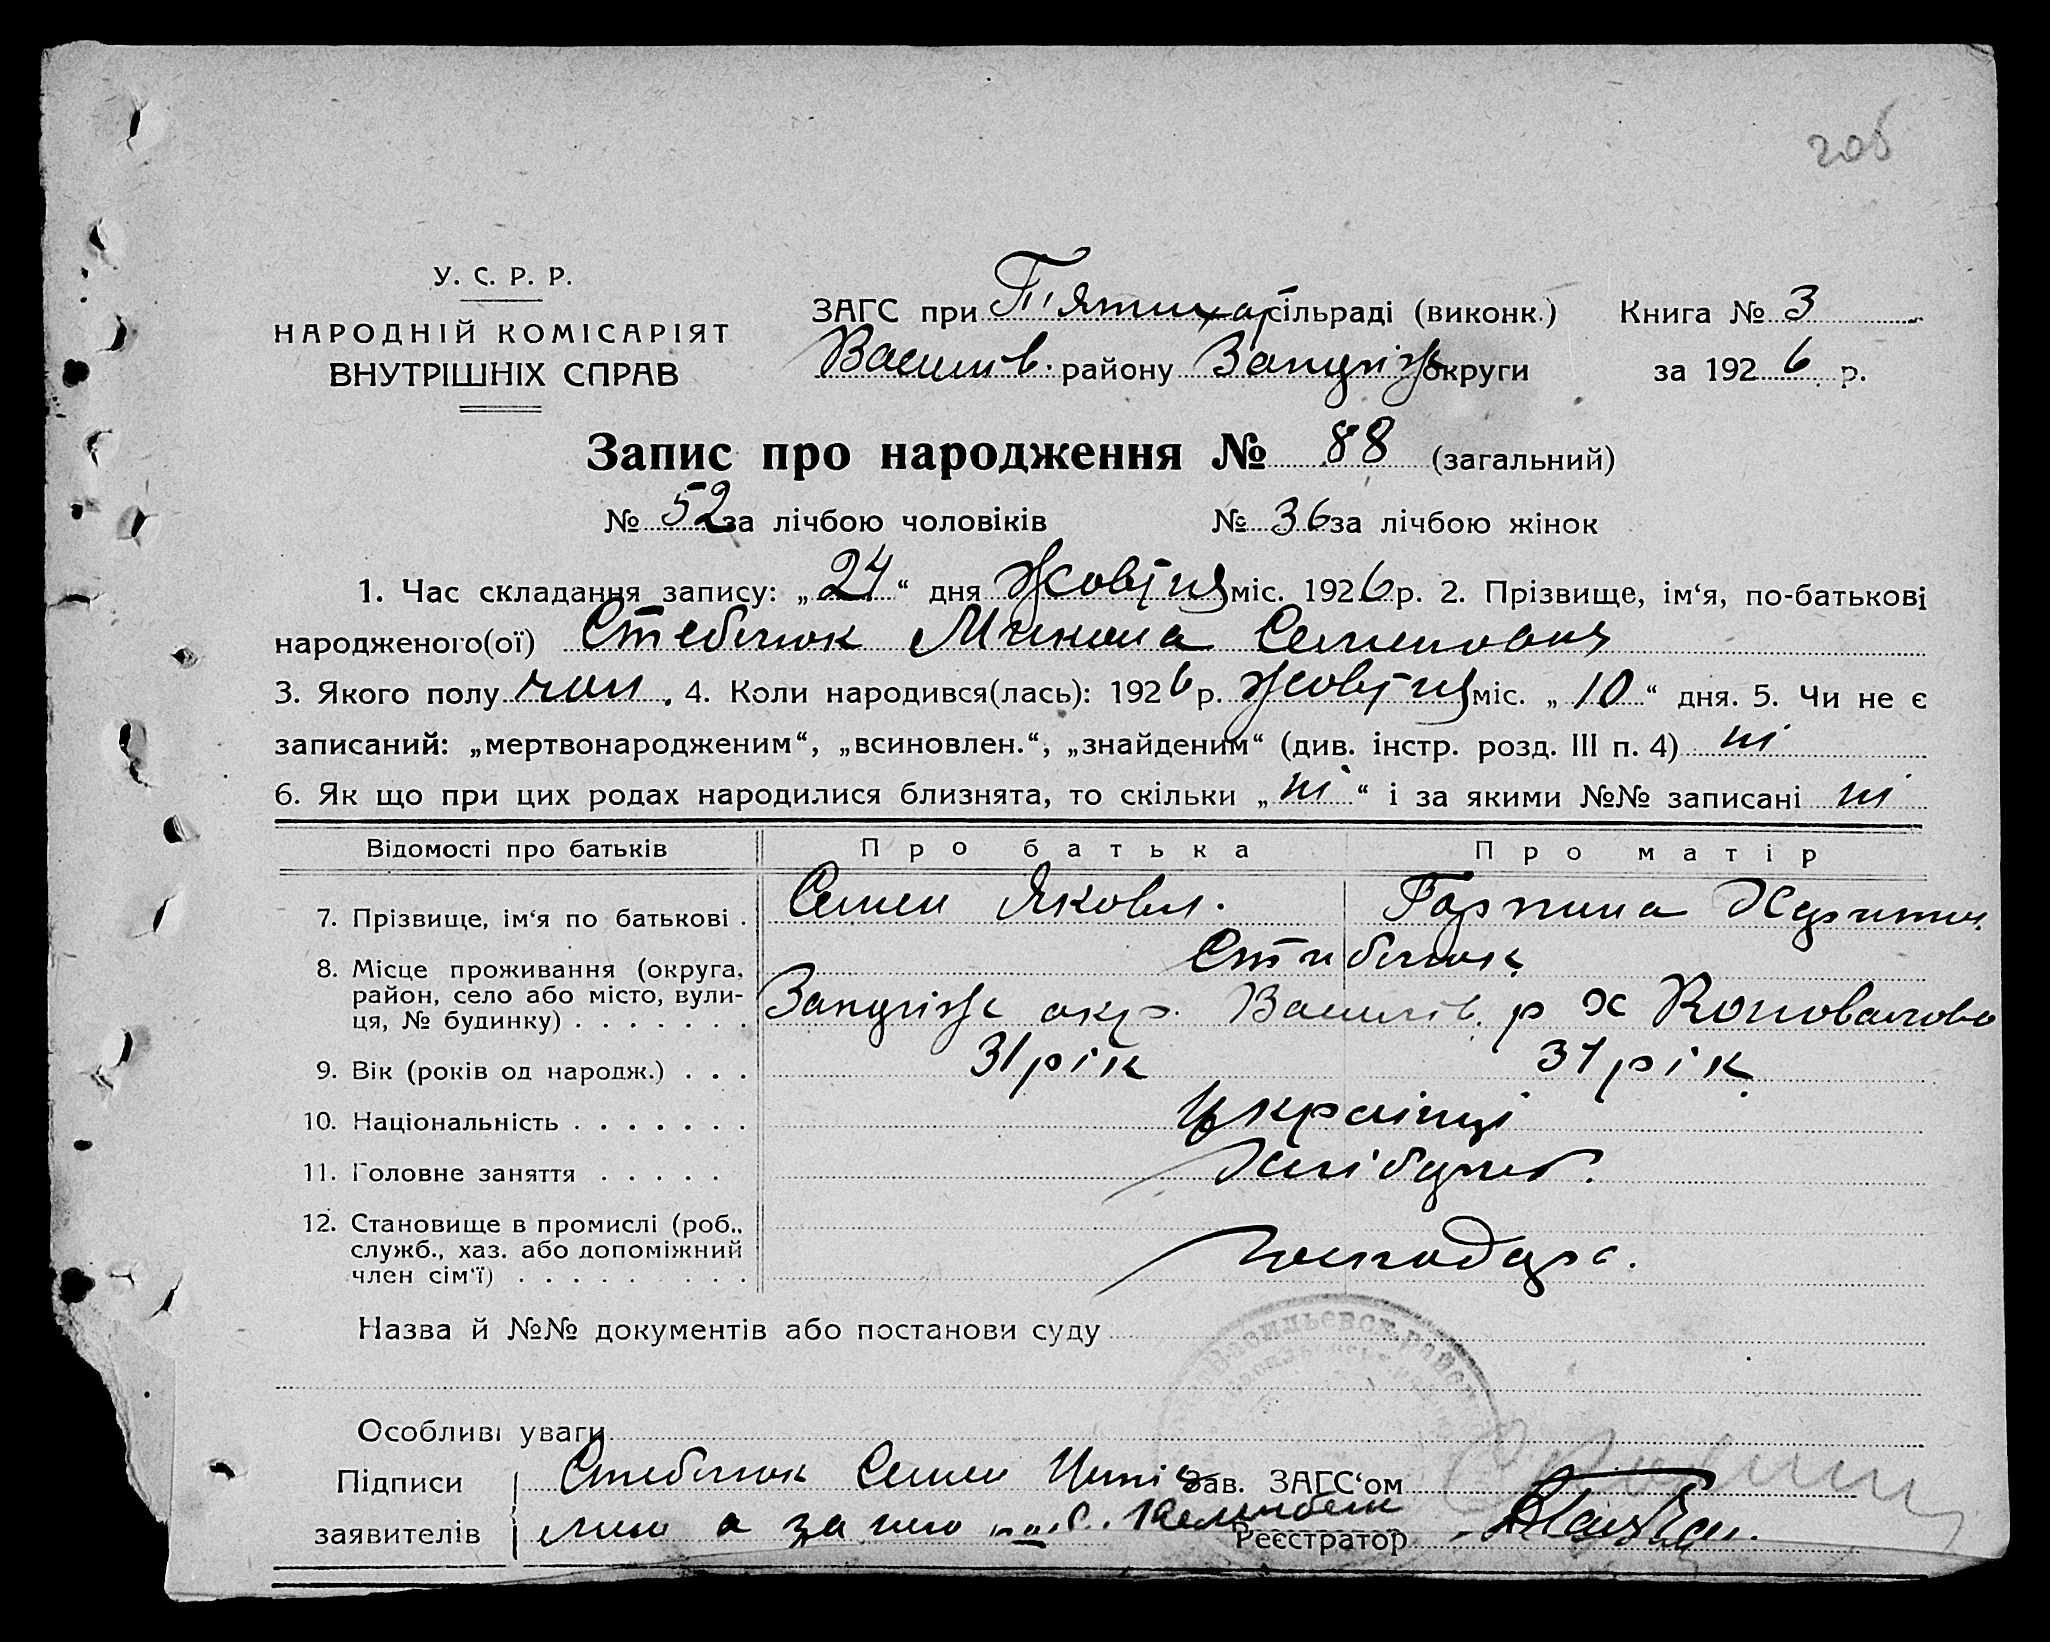 206
У. С. Р. Р.
НАРОДНІЙ КОМІСАРІЯТ
ВНУТРІШНІХ СПРАВ
ЗАГС при П'ятихат сільраді (виконк.) Книга № 3
Василів. району Запоріж округи за 1926 р.
Запис про народження № 88 (загальний)
№ 52 за лічбою чоловіків № 36 за лічбою жінок
1. Час складання запису: „24“ дня Жовтня міс. 1926 р. 2. Прізвище, ім‘я, по-батькові
народженого(ої) Стеблюк Микола Семенович
3. Якого полу чол. 4. Коли народився(лась): 1926 р. жовтня міс. „10“ дня. 5. Чи не є
записаний: „мертвонародженим“, „всиновлен.“, „знайденим“ (див. інстр. розд. III п. 4) ні
6. Як що при цих родах народилися близнята, то скільки „ні“ і за якими №№ записані ні
Відомості про батьків Про батька Про матір
7. Прізвище, ім‘я по батькові . Семен Яковл. Горпина Харитин.
Стиблюк
8. Місце проживання (округа,
район, село або місто, вули-
ця, № будинку) . . . . . . . Запоріж окр. Василів. р х Коновалова
9. Вік (років од народж.) . . . 31 рік 31 рік
10. Національність . . . . . . . Українці
11. Головне заняття . . . . . Хлібороб.
12. Становище в промислі (роб.,
служб., хаз. або допоміжний
член сім‘ї) . . . . . . . . . Господарс.
Назва й №№ документів або постанови суду
Особливі уваги
Підписи Стеблюк Семен Зав. ЗАГС‘ом
заявителів а за його Реєстратор